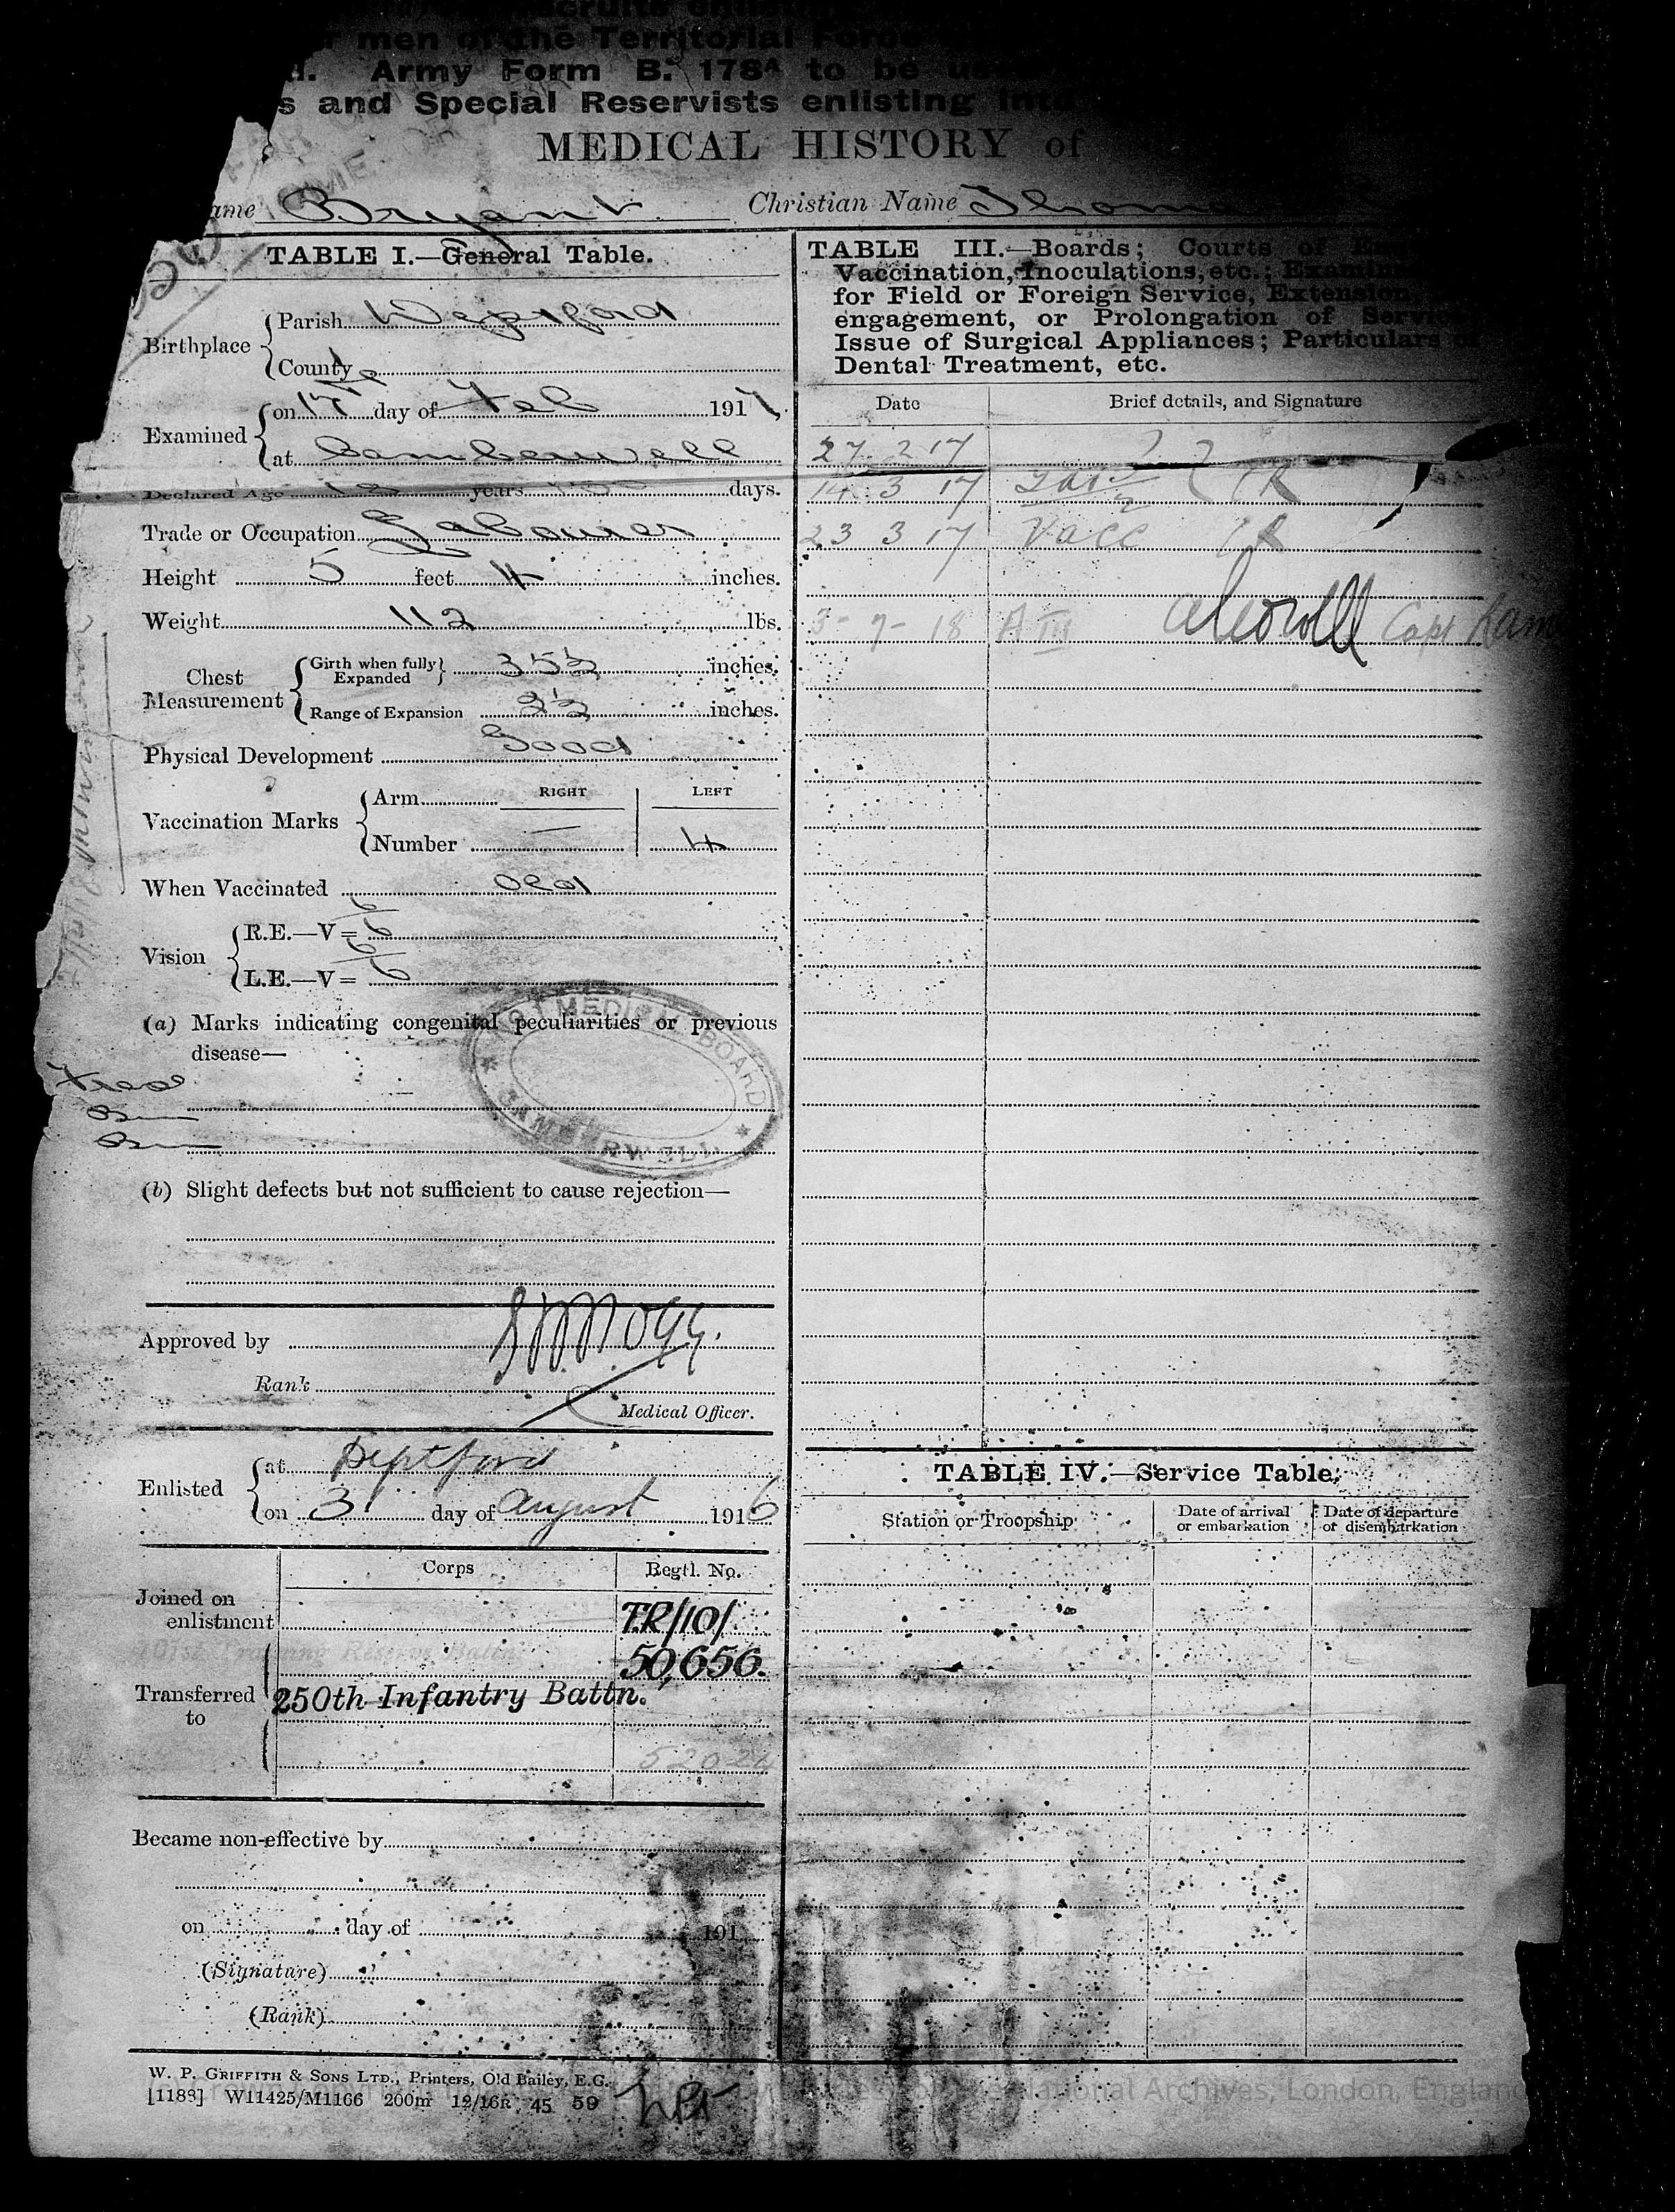 recruits enlisting
men of the Territorial Force
d. Army Form B. 178A to be us
s and Special Reservists enlisting into
MEDICAL HISTORY of
ame Bryant Christian Name Thoma
TABLE I.—General Table.
Birthplace
Parish Deptford
County
Examined
on 17th day of Feb 1917
at Camberwell
Declared Age years days.
Trade or Occupation Labourer
Height 5 feet 4 inches.
Weight 112 lbs.
Chest Measurement
Girth when fully Expanded 35½ inches.
Range of Expansion 2½ inches.
Physical Development Good
Vaccination Marks
Arm RIGHT LEFT
Number — 4
When Vaccinated Old
Vision
R.E.—V= 6/6
L.E.—V= 6/6
(a) Marks indicating congenital peculiarities or previous
disease—
MEDICAL BOARD
CAMBERWELL
(b) Slight defects but not sufficient to cause rejection—
Approved by
Rank
Medical Officer.
Enlisted
at Deptford
on 3 day of August 1916
Corps Regtl. No.
Joined on enlistment
T.R/10/
50,656.
Transferred to
250th Infantry Battn.
Became non-effective by
on day of 191
(Signature)
(Rank)
W. P. GRIFFITH & SONS LTD., Printers, Old Bailey, E.C.
[1188] W11425/M1166 200m 12/16R 45 59
TABLE III.—Boards; Courts of En
Vaccination, Inoculations, etc.; Examin
for Field or Foreign Service, Extension,
engagement, or Prolongation of Service
Issue of Surgical Appliances; Particulars of
Dental Treatment, etc.
Date Brief details, and Signature
27 2 17
14 3 17
23 3 17 Vacc
3-7-18 A III Capt Ram
TABLE IV.—Service Table.
Station or Troopship
Date of arrival or embarkation
Date of departure or disembarkation
National Archives, London, England